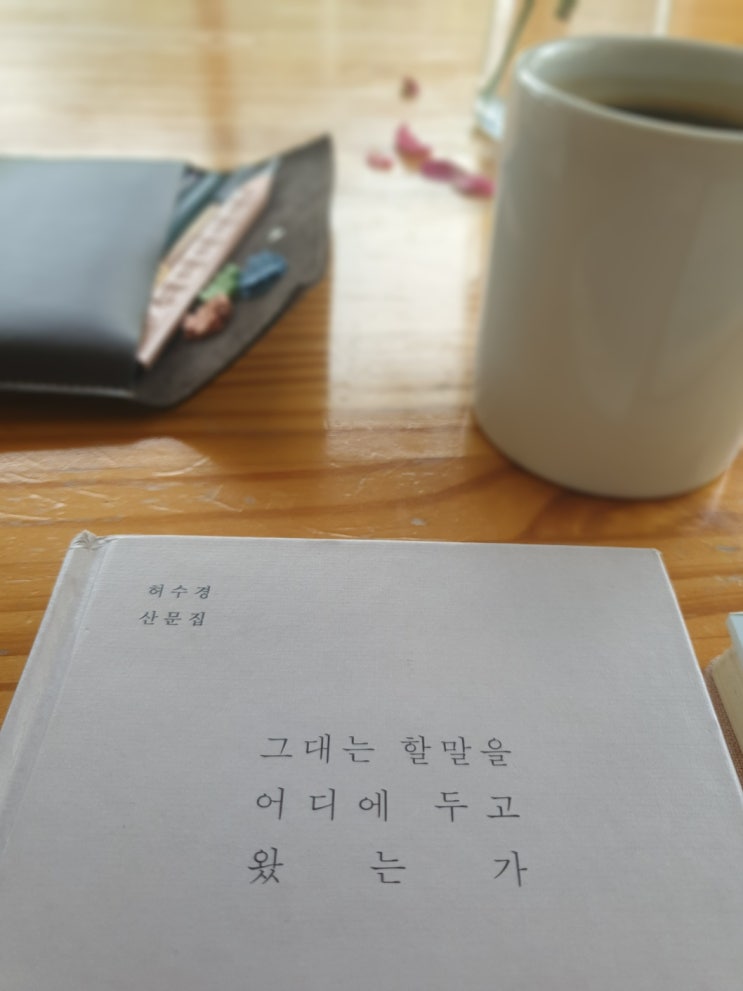 허수경
산문집
그대는 할말을
어디에 두고
왔는가